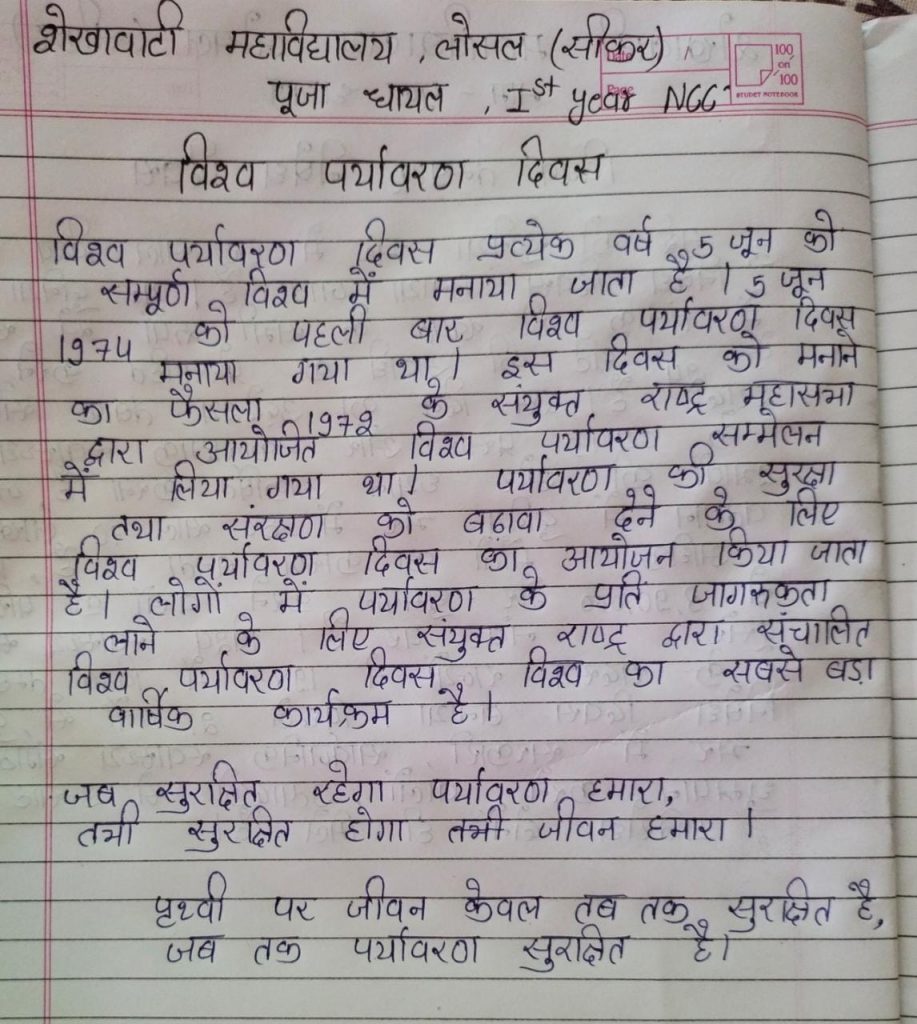 शेखावाटी महाविद्यालय, लोसल (सीकर)
100 on 100
STUDET NOTEBOOK
Date
Page
पूजा धायल, Ist year NCC
विश्व पर्यावरण दिवस
विश्व पर्यावरण दिवस प्रत्येक वर्ष 5 जून को
सम्पूर्ण विश्व में मनाया जाता है। 5 जून
1974 को पहली बार विश्व पर्यावरण दिवस
मनाया गया था। इस दिवस को मनाने
का फैसला 1972 के संयुक्त राष्ट्र महासभा
द्वारा आयोजित विश्व पर्यावरण सम्मेलन
में लिया गया था। पर्यावरण की सुरक्षा
तथा संरक्षण को बढावा देने के लिए
विश्व पर्यावरण दिवस का आयोजन किया जाता
है। लोगों में पर्यावरण के प्रति जागरुकता
लाने के लिए संयुक्त राष्ट्र द्वारा संचालित
विश्व पर्यावरण दिवस विश्व का सबसे बड़ा
वार्षिक कार्यक्रम है।
जब सुरक्षित रहेगा पर्यावरण हमारा,
तभी सुरक्षित होगा तभी जीवन हमारा।
पृथ्वी पर जीवन केवल तब तक सुरक्षित है,
जब तक पर्यावरण सुरक्षित है।